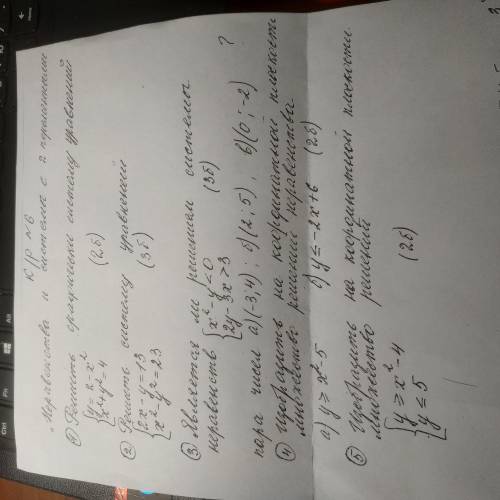 К/Р №6
"Неравенства и системы с 2 переменными
① Решить графически систему уравнений
{y = 2 - x²
{x² + y² = 4 (2б)
② Решить систему уравнений
{2x - y = 13
{x² - y² = 23 (3б)
③ Является ли решением системы
неравенств {x² - y < 0
{2y - 3x > 3 (3б)
пара чисел а) (-3; 4); б) (2; 5); в) (0; -2) ?
④ Изобразить на координатной плоскости
множество решений неравенства
а) y ≥ x² - 5 б) y ≤ -2x + 6 (2б)
⑤ Изобразить на координатной плоскости
множество решений
{y ≥ x² - 4
{y ≤ 5 (2б)